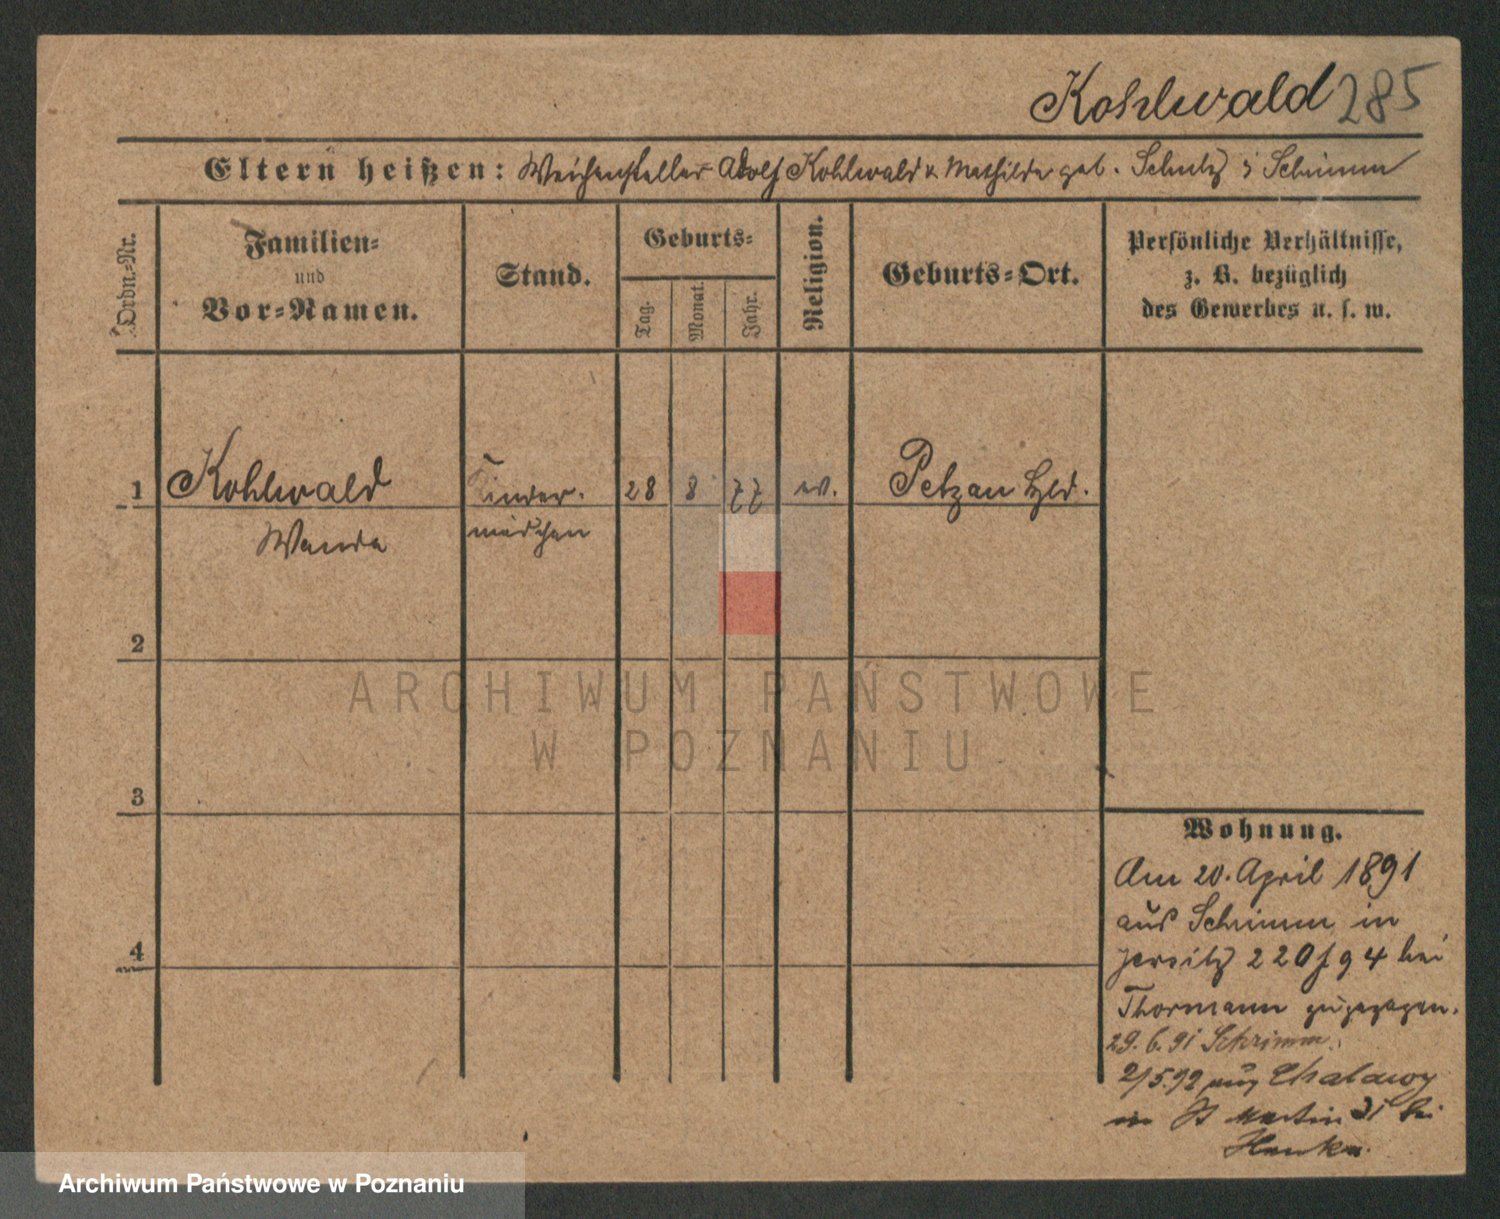 Kohlwald 285
Eltern heißen: Weichensteller Adolf Kohlwald & Mathilde geb. Schulz Schrimm
Ordn.-Nr.
Familien-
und
Vor-Namen.
Stand.
Geburts-
Tag.
Monat.
Jahr.
Religion.
Geburts-Ort.
Persönliche Verhältnisse,
z. B. bezüglich
des Gewerbes u. s. w.
1 Kohlwald Kinder- 28 8 77 Petzau Hld.
Wanda mädchen
2
3
4
Wohnung.
Am 20. April 1891
aus Schrimm in
Jersitz 220 94 bei
Thormann zugezogen.
29.6.91 Schrimm.
2/5.92 aus
in St Martin 31 bei
ARCHIWUM PAŃSTWOWE
W POZNANIU
Archiwum Państwowe w Poznaniu